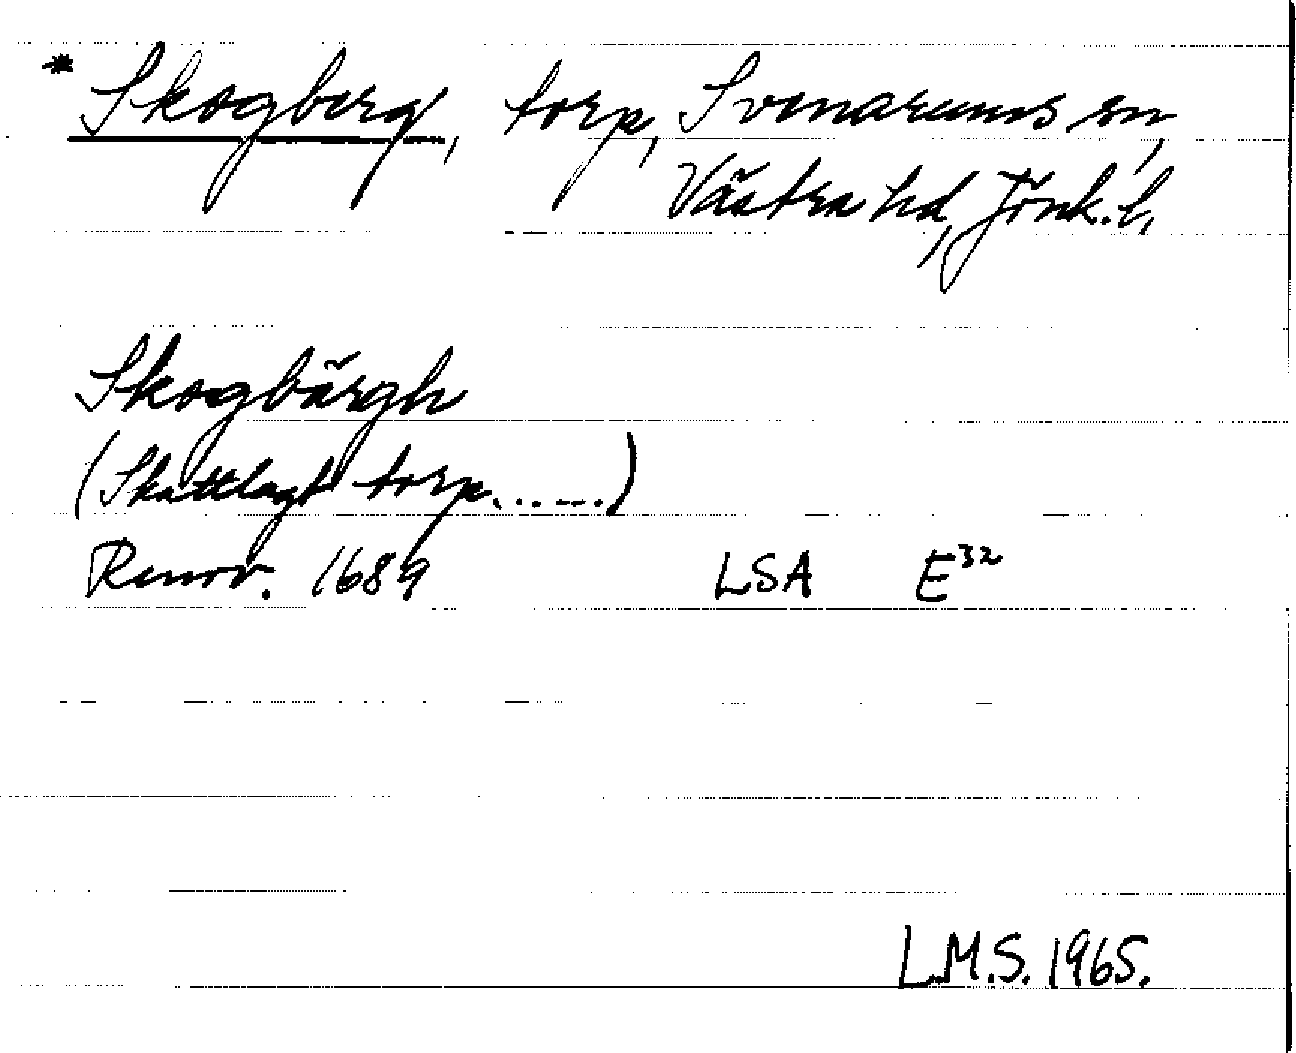 * Skogberg, torp, Svenarums sn,
Västra hd, Jönk. l.
Skogbärgh
(Skattlagt torp.......)
Renov. 1689 LSA E32
L.M.S. 1965.